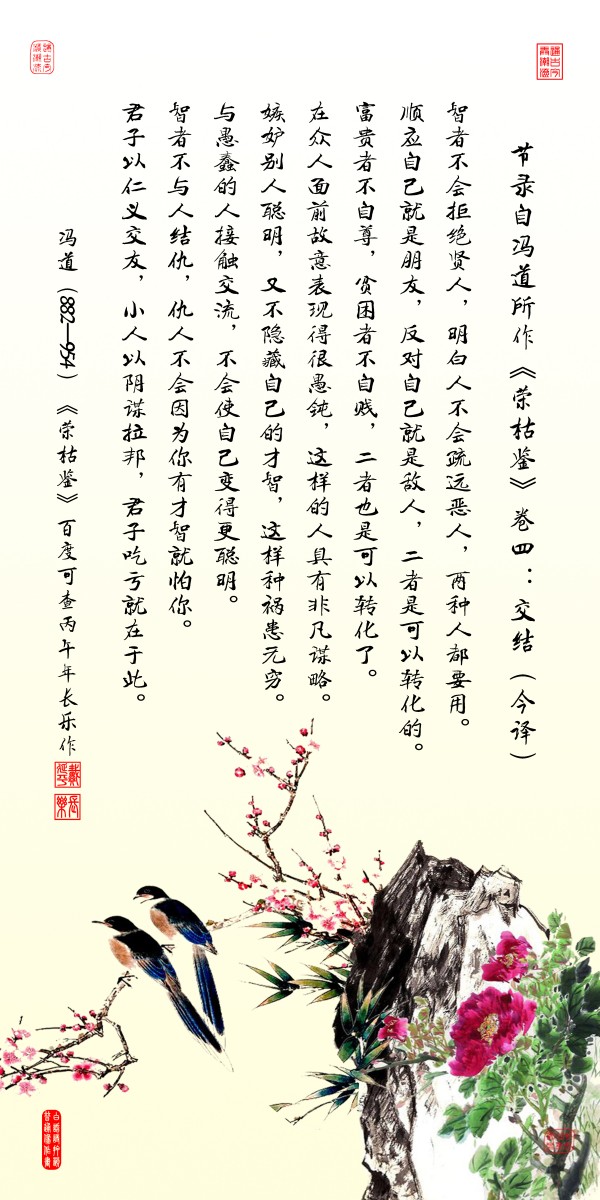 节录自冯道所作《荣枯鉴》卷四：交结（今译）
智者不会拒绝贤人，明白人不会疏远恶人，两种人都要用。
顺应自己就是朋友，反对自己就是敌人，二者是可以转化的。
富贵者不自尊，贫困者不自贱，二者也是可以转化了。
在众人面前故意表现得很愚钝，这样的人具有非凡谋略。
嫉妒别人聪明，又不隐藏自己的才智，这样种祸患无穷。
与愚蠢的人接触交流，不会使自己变得更聪明。
智者不与人结仇，仇人不会因为你有才智就怕你。
君子以仁义交友，小人以阴谋拉邦，君子吃亏就在于此。
冯道（882—954）《荣枯鉴》百度可查丙午年长乐作